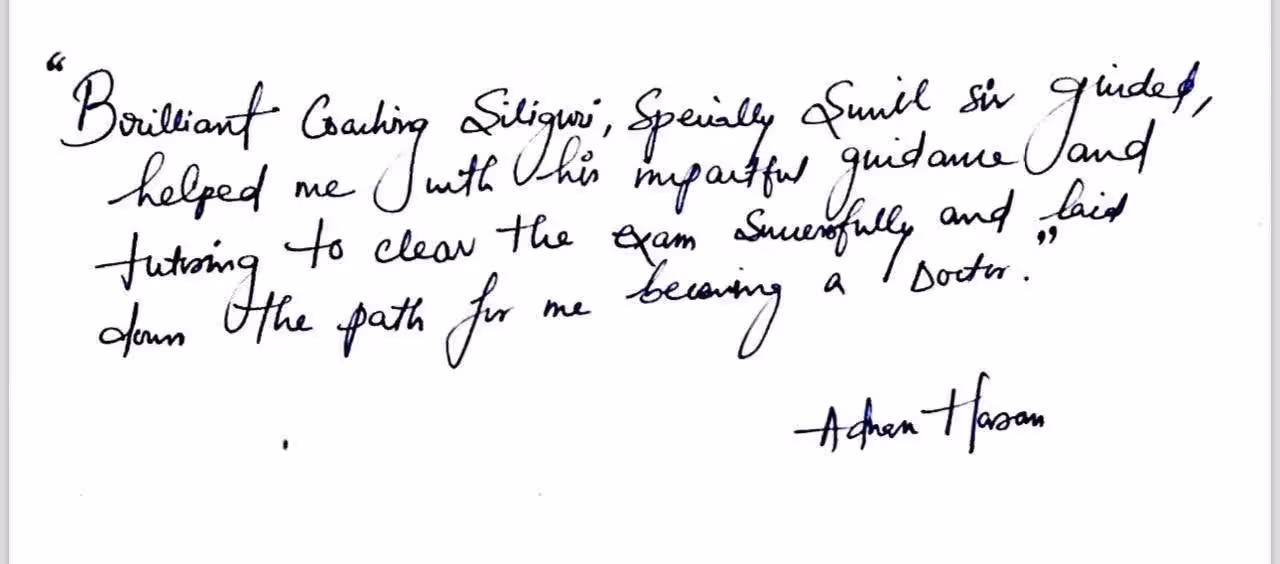 “Brilliant Coaching Siliguri, Specially Sunil sir guided,
helped me with his impactful guidance and
tutoring to clear the exam successfully and laid
down the path for me becoming a Doctor.”
Adnan Hasan